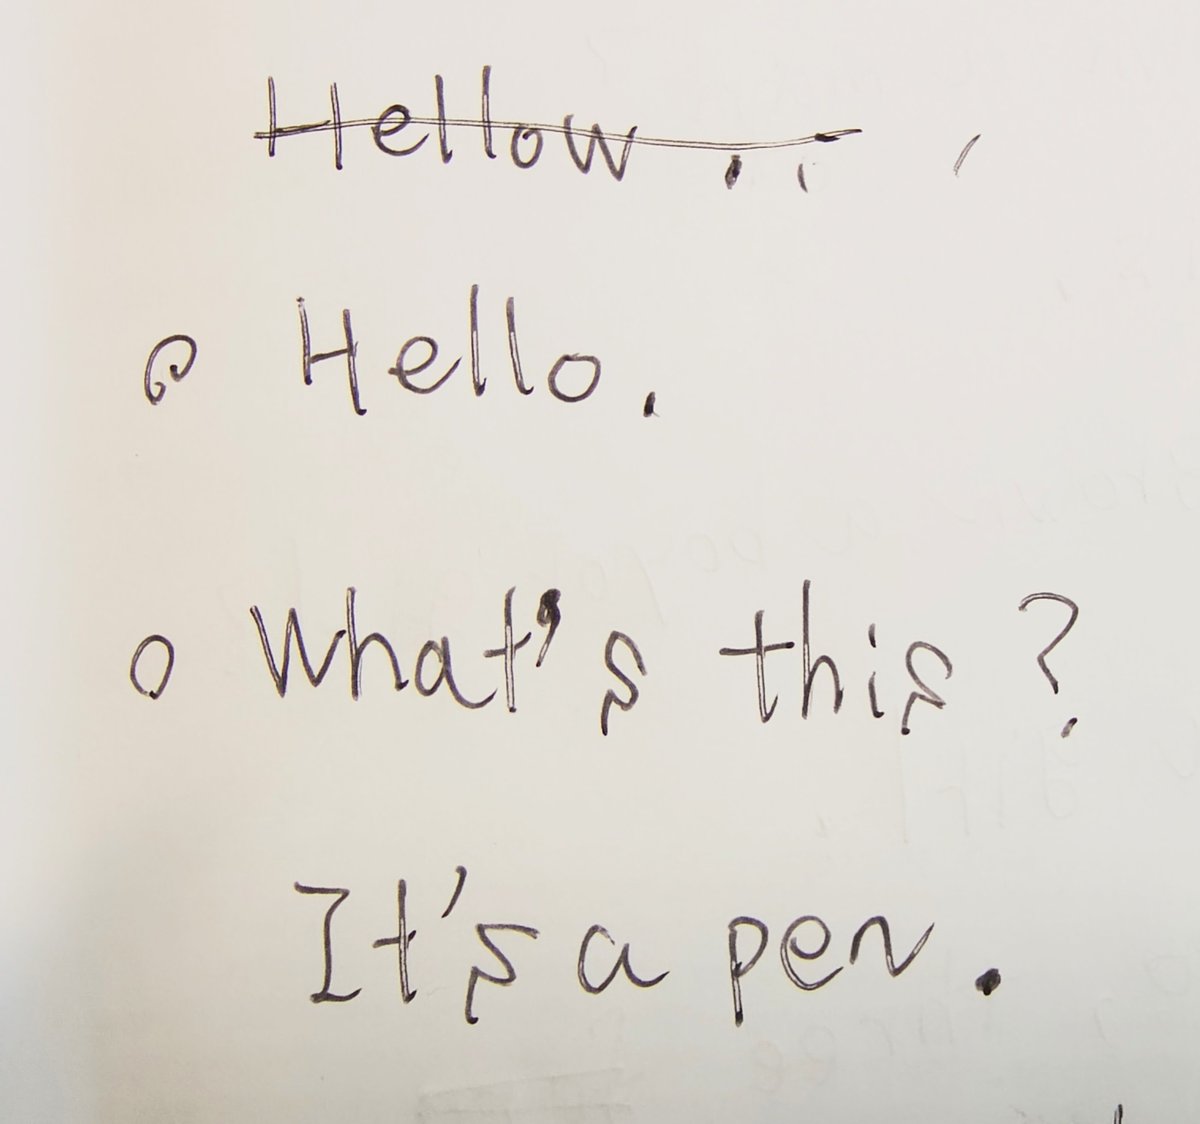 Hellow..
o Hello.
o What's this?
It's a pen.